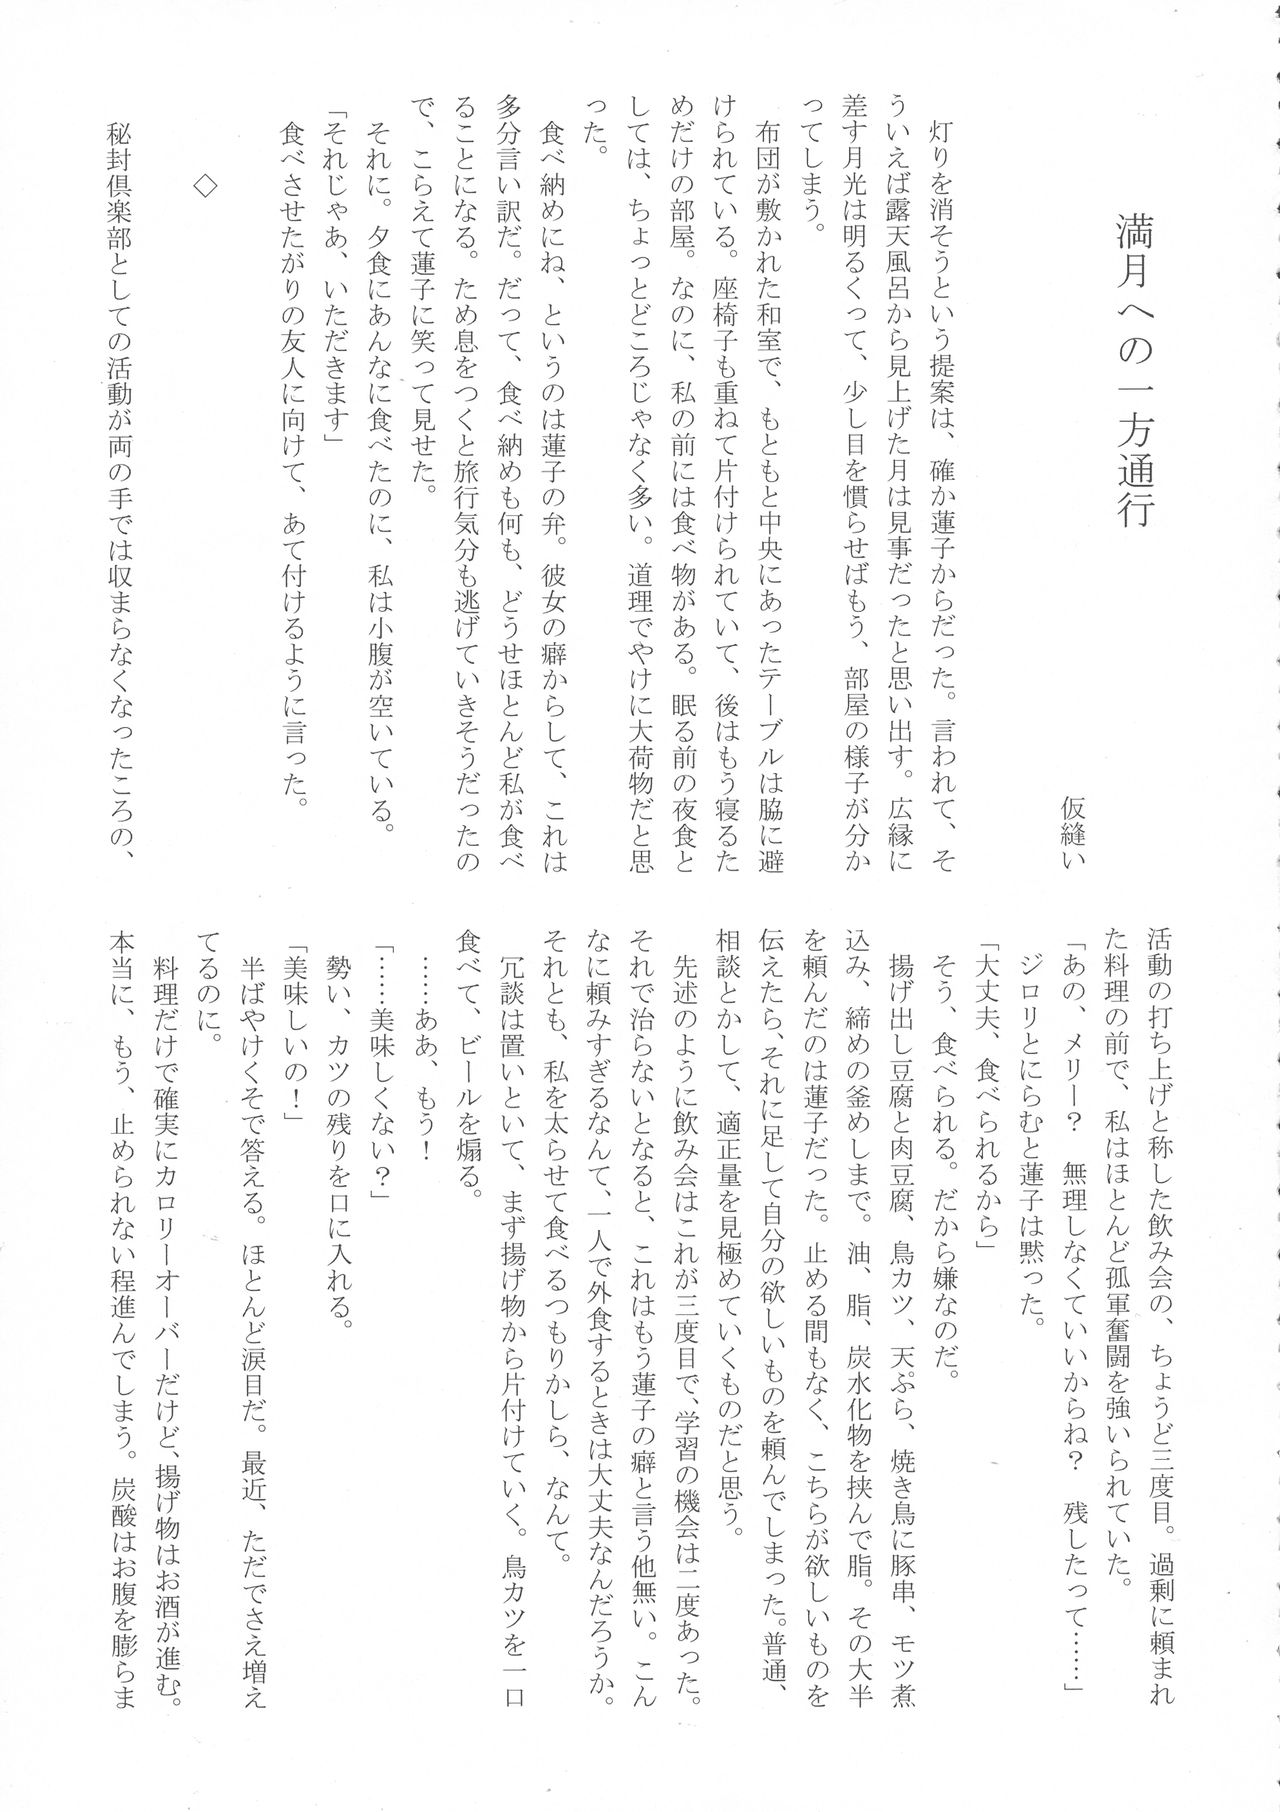 満月への一方通行
仮縫い
灯りを消そうという提案は、確か蓮子からだった。言われて、そ
ういえば露天風呂から見上げた月は見事だったと思い出す。広縁に
差す月光は明るくって、少し目を慣らせばもう、部屋の様子が分か
ってしまう。
布団が敷かれた和室で、もともと中央にあったテーブルは脇に避
けられている。座椅子も重ねて片付けられていて、後はもう寝るた
めだけの部屋。なのに、私の前には食べ物がある。眠る前の夜食と
しては、ちょっとどころじゃなく多い。道理でやけに大荷物だと思
った。
食べ納めにね、というのは蓮子の弁。彼女の癖からして、これは
多分言い訳だ。だって、食べ納めも何も、どうせほとんど私が食べ
ることになる。ため息をつくと旅行気分も逃げていきそうだったの
で、こらえて蓮子に笑って見せた。
それに。夕食にあんなに食べたのに、私は小腹が空いている。
「それじゃあ、いただきます」
食べさせたがりの友人に向けて、あて付けるように言った。
◇
秘封倶楽部としての活動が両の手では収まらなくなったころの、
活動の打ち上げと称した飲み会の、ちょうど三度目。過剰に頼まれ
た料理の前で、私はほとんど孤軍奮闘を強いられていた。
「あの、メリー？　無理しなくていいからね？　残したって……」
ジロリとにらむと蓮子は黙った。
「大丈夫、食べられるから」
そう、食べられる。だから嫌なのだ。
揚げ出し豆腐と肉豆腐、鳥カツ、天ぷら、焼き鳥に豚串、モツ煮
込み、締めの釜めしまで。油、脂、炭水化物を挟んで脂。その大半
を頼んだのは蓮子だった。止める間もなく、こちらが欲しいものを
伝えたら、それに足して自分の欲しいものを頼んでしまった。普通、
相談とかして、適正量を見極めていくものだと思う。
先述のように飲み会はこれが三度目で、学習の機会は二度あった。
それで治らないとなると、これはもう蓮子の癖と言う他無い。こん
なに頼みすぎるなんて、一人で外食するときは大丈夫なんだろうか。
それとも、私を太らせて食べるつもりかしら、なんて。
冗談は置いといて、まず揚げ物から片付けていく。鳥カツを一口
食べて、ビールを煽る。
……ああ、もう！
「……美味しくない？」
勢い、カツの残りを口に入れる。
「美味しいの！」
半ばやけくそで答える。ほとんど涙目だ。最近、ただでさえ増え
てるのに。
料理だけで確実にカロリーオーバーだけど、揚げ物はお酒が進む。
本当に、もう、止められない程進んでしまう。炭酸はお腹を膨らま